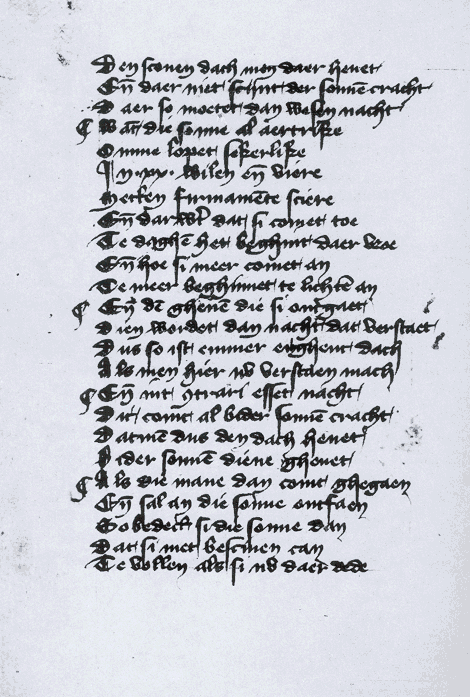 Den sconen dach men daer heuet
Eñ daer niet scijnt der sonnē cracht
Daer so moetet dan wesen nacht
¶ Wāt die sonne al aertrike
Omme lopet sekerlike
In .xx. wilen eñ viere
Metten firmamēte sciere
Eñ dat si comet toe
Te daghē het beghint daer vroe
Eñ hoe si meer comet an
Te meer beghinnet te lichtē an
¶ Eñ dē ghenē die si ontgaet
Dien wordet dan nacht dat verstaet
Dus so ist emmer dach
Als men hier nv verstaen mach
¶ Eñ int ꝯtrari esset nacht
Dit comt al bider sonnē cracht
Datmē dus den dach heuet
der sonnē diene gheuet
¶ Als die mane dan comt ghegaen
Eñ sal an die sonne ontfaen
So bedect si die sonne dan
Dat si niet bescinen can
Te vollen als si nv daer dede